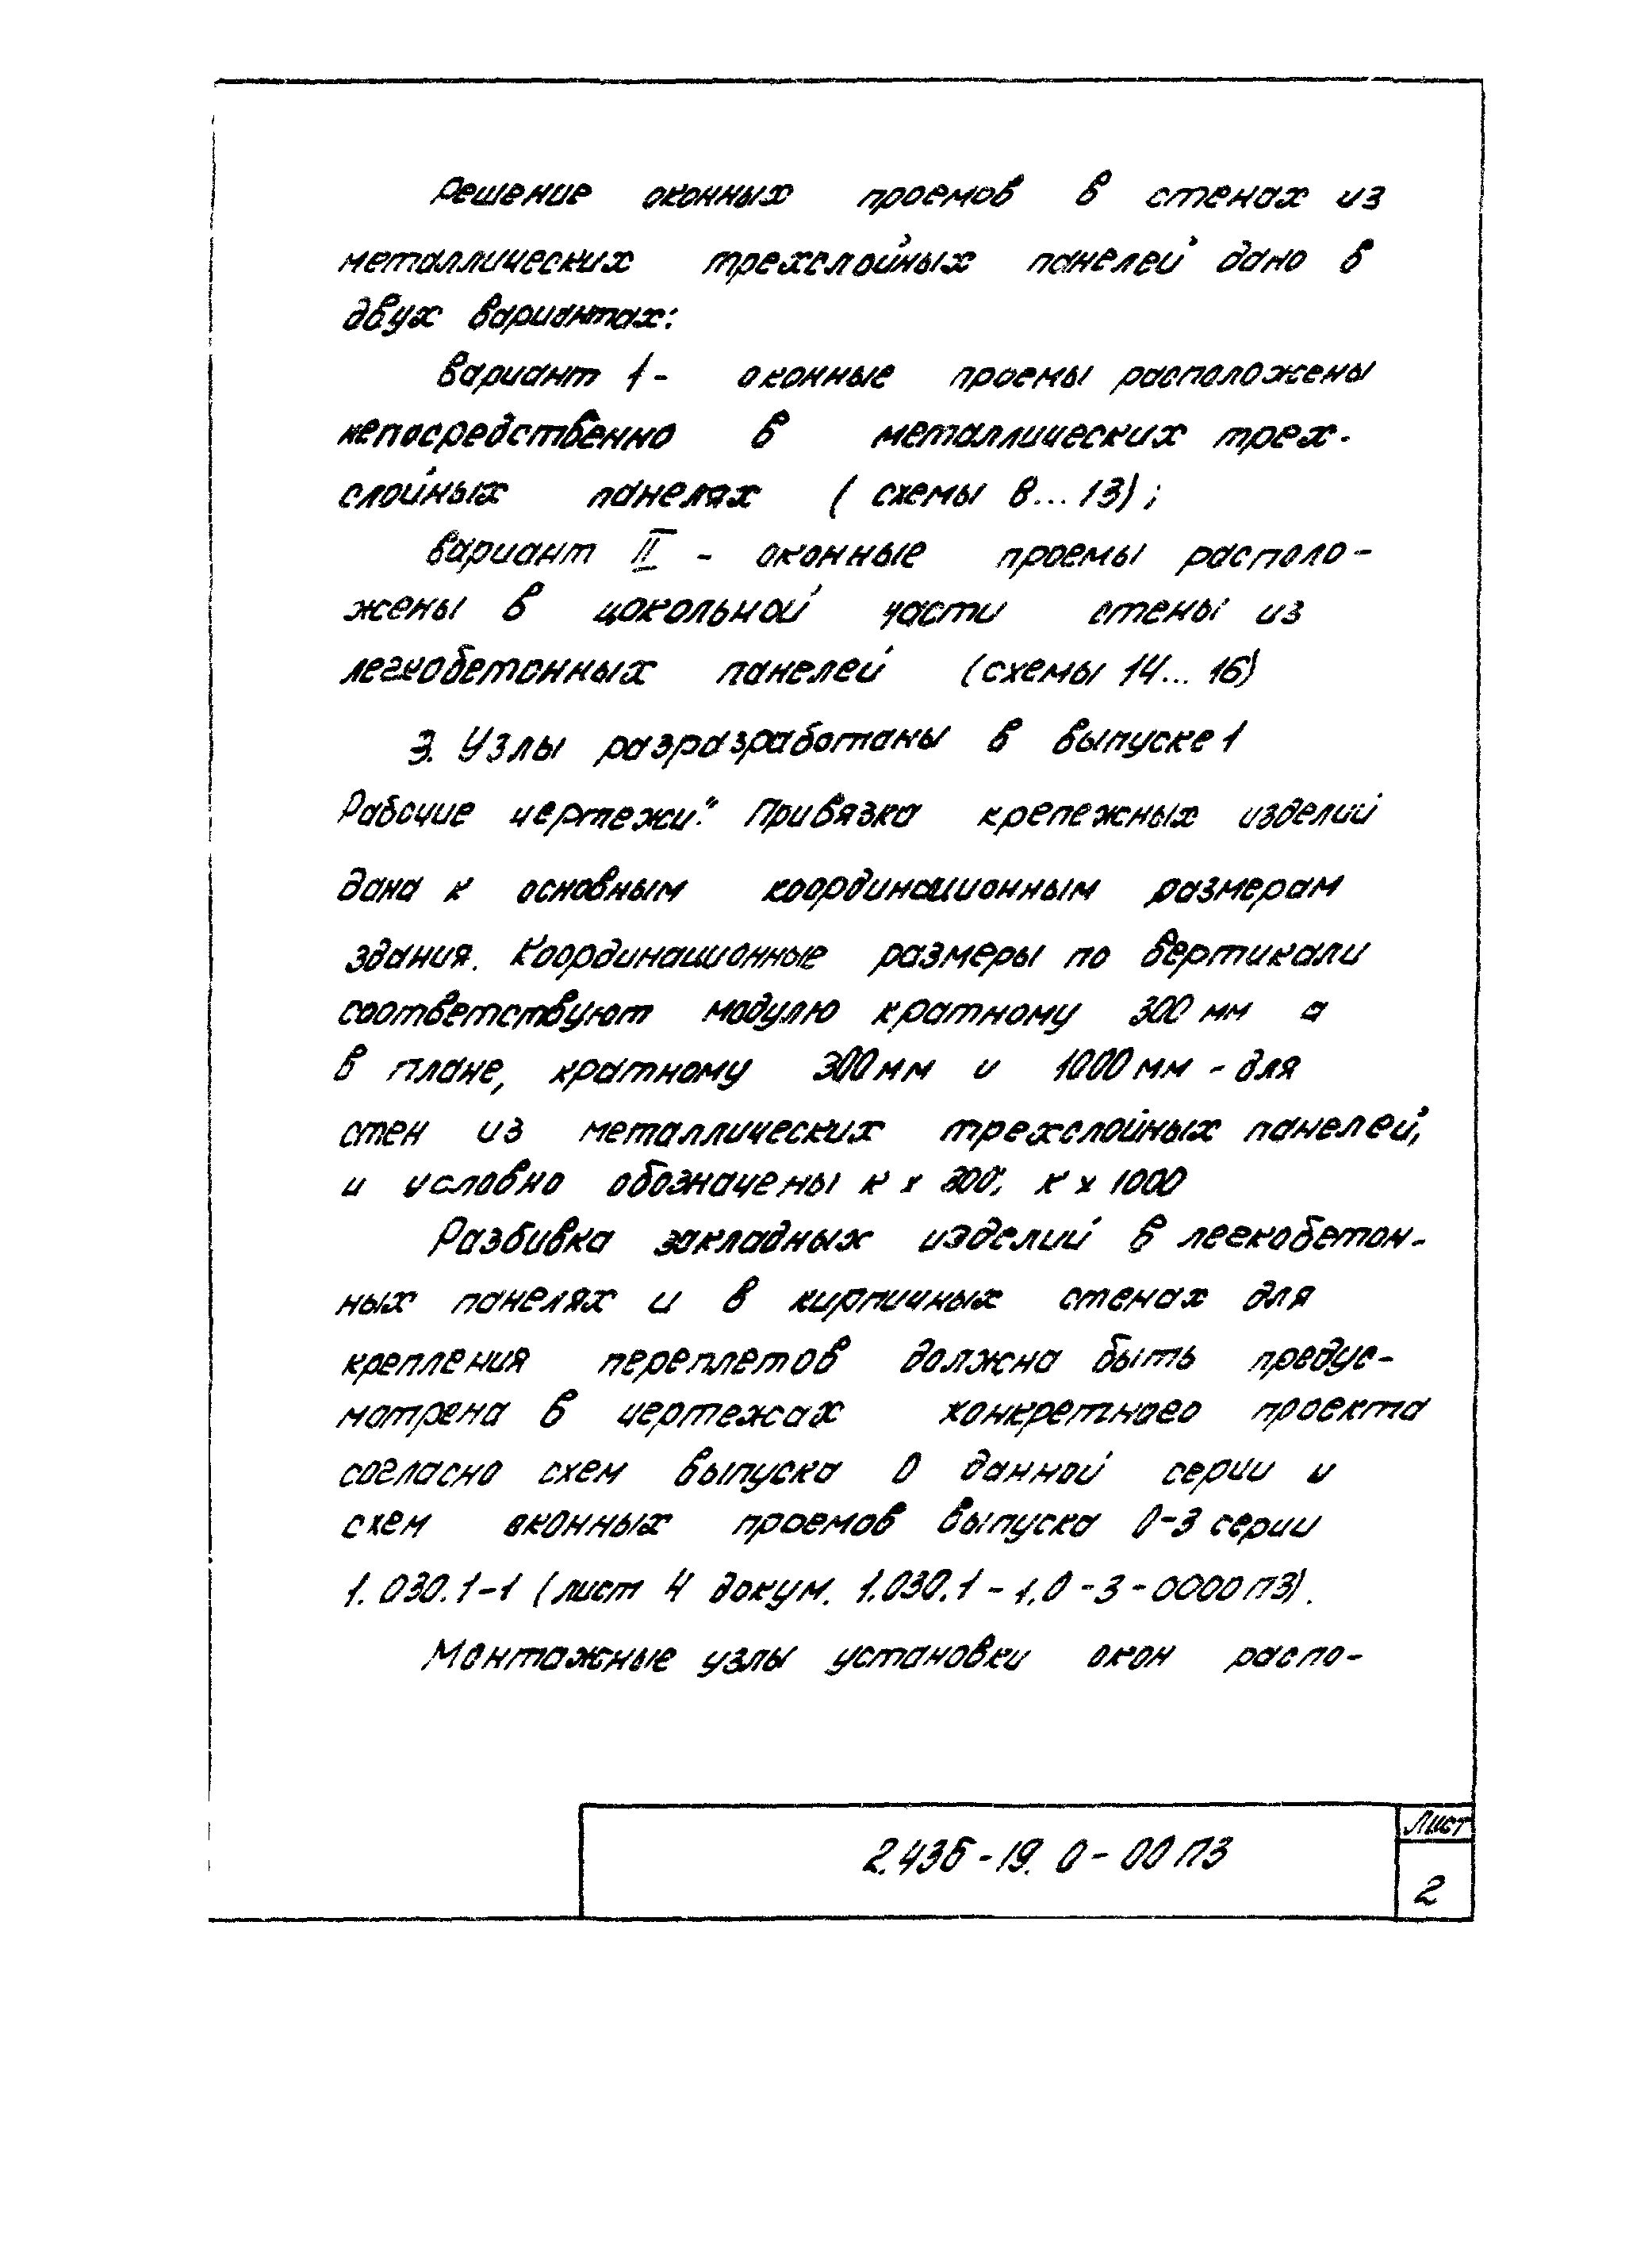 Решение оконных проемов в стенах из
металлических трехслойных панелей дано в
двух вариантах:
вариант 1 - оконные проемы расположены
непосредственно в металлических трех-
слойных панелях (схемы 8...13);
вариант II - оконные проемы располо-
жены в цокольной части стены из
легкобетонных панелей (схемы 14...16)
3. Узлы разразработаны в выпуске 1
Рабочие чертежи". Привязка крепежных изделий
дана к основным координационным размерам
здания. Координационные размеры по вертикали
соответствуют модулю кратному 300 мм а
в плане, кратному 300 мм и 1000 мм - для
стен из металлических трехслойных панелей,
и условно обозначены к х 300; к х 1000
Разбивка закладных изделий в легкобетон-
ных панелях и в кирпичных стенах для
крепления переплетов должна быть предус-
мотрена в чертежах конкретного проекта
согласно схем выпуска 0 данной серии и
схем оконных проемов выпуска 0-3 серии
1.030.1-1 (лист 4 докум. 1.030.1-1.0-3-0000ПЗ).
Монтажные узлы установки окон распо-
2.436-19.0-00ПЗ
Лист
2